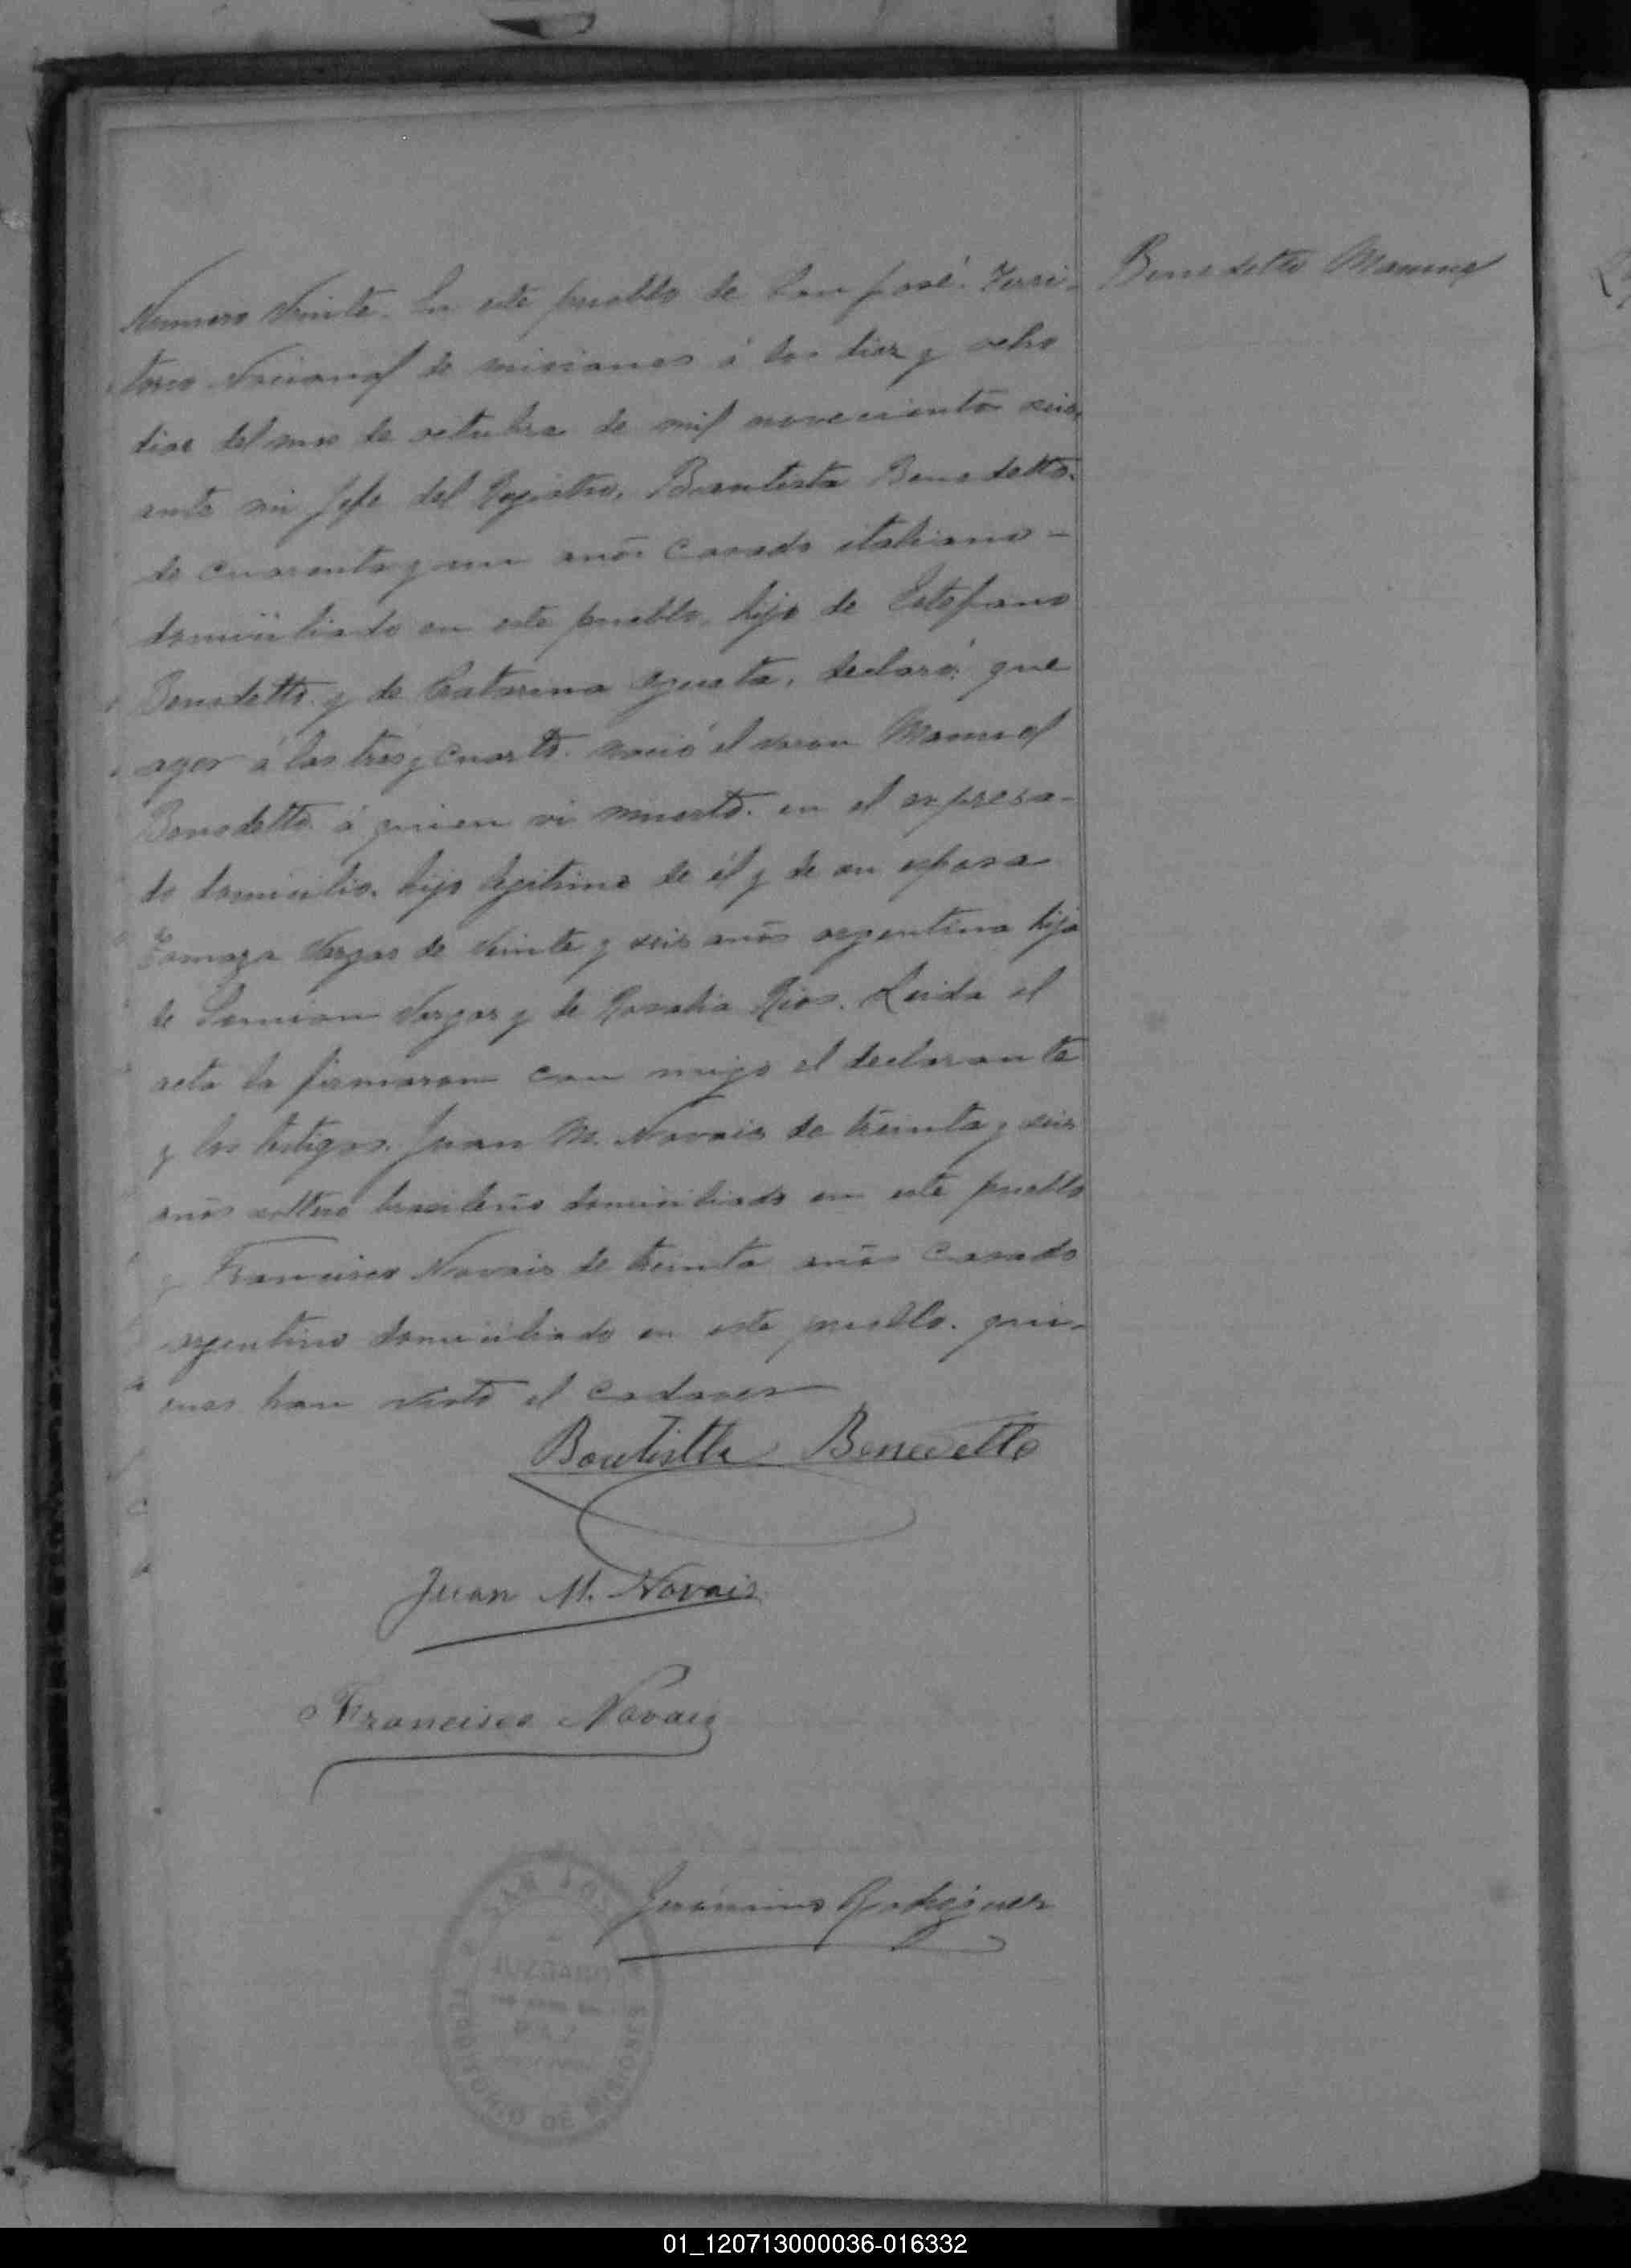 Benedetto Manuel
Numero Veinte. En este pueblo de San José. Terri-
torio Nacional de misiones á los diez y ocho
dias del mes de octubre de mil novecientos seis,
ante mi Jefe del Registro, Bautista Benedetto.
de cuarenta y un años casado italiano-
domiciliado en este pueblo, hijo de Estefano
Benedetto. y de Catarina, declaró: que
ayer á las tres y cuarto. nació el varon Manuel
Benedetto. á quien vi muerto. en el expresa-
do domicilio. hijo legitimo de él y de su esposa
Tomaza Vargas de veinte y seis años argentina hija
de Damian Vargas y de Rosalia Rios. Leida el
acta la firmaron con migo el declarante
y los testigos. Juan M. Novais de treinta y seis
años soltero brasileño domiciliado en este pueblo
y Francisco Novais de treinta años casado
argentino domiciliado en este pueblo. qui-
enes han visto el cadaver
Bautistta Benedetto
Juan M. Novais
Francisco Novais
Jeronimo Rodriguez
SAN JOSE
JUZGADO
PAZ
TERRITORIO DE MISIONES
01_120713000036-016332